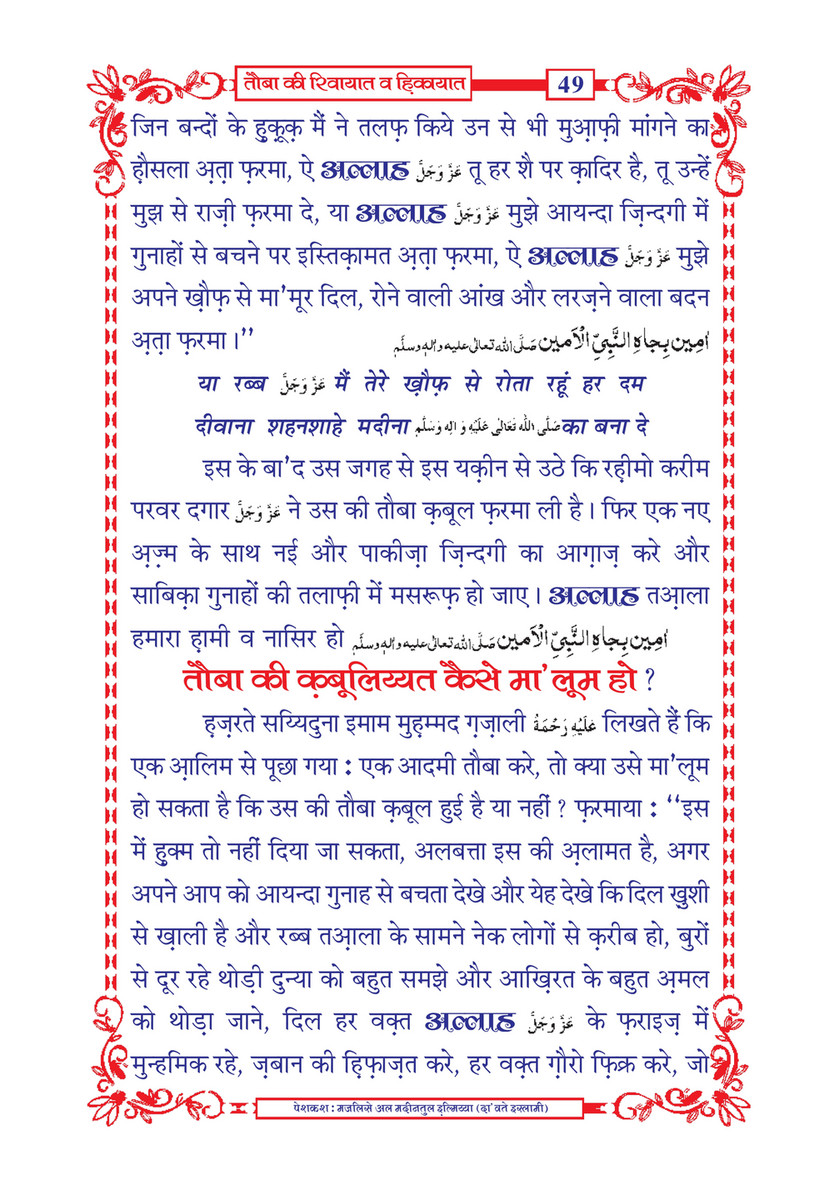 तौबा की रिवायात व ह़िकायात
49
जिन बन्दों के ह़ुक़ूक़ मैं ने तलफ़ किये उन से भी मुआ़फ़ी मांगने का
ह़ौसला अ़त़ा फ़रमा, ऐ अल्लाह عَزَّ وَجَلَّ तू हर शै पर क़ादिर है, तू उन्हें
मुझ से राज़ी फ़रमा दे, या अल्लाह عَزَّ وَجَلَّ मुझे आयन्दा ज़िन्दगी में
गुनाहों से बचने पर इस्तिक़ामत अ़त़ा फ़रमा, ऐ अल्लाह عَزَّ وَجَلَّ मुझे
अपने ख़ौफ़ से मा'मूर दिल, रोने वाली आंख और लरज़ने वाला बदन
अ़त़ा फ़रमा ।'' اٰمِين بِجاهِ النَّبِيِّ الْاَمين صَلَّى الله تعالى عليه واٰلهٖ وسلَّم
या रब्ब عَزَّ وَجَلَّ मैं तेरे ख़ौफ़ से रोता रहूं हर दम
दीवाना शहनशाहे मदीना صَلَّى اللّٰهُ تَعَالٰى عَلَيْهِ وَاٰلِهٖ وَسَلَّم का बना दे
इस के बा'द उस जगह से इस यक़ीन से उठे कि रह़ीमो करीम
परवर दगार عَزَّ وَجَلَّ ने उस की तौबा क़बूल फ़रमा ली है । फिर एक नए
अ़ज़्म के साथ नई और पाकीज़ा ज़िन्दगी का आग़ाज़ करे और
साबिक़ा गुनाहों की तलाफ़ी में मसरूफ़ हो जाए । अल्लाह तआ़ला
हमारा ह़ामी व नासिर हो اٰمِين بِجاهِ النَّبِيِّ الْاَمين صَلَّى الله تعالى عليه واٰلهٖ وسلَّم
तौबा की क़बूलिय्यत कैसे मा'लूम हो ?
ह़ज़रते सय्यिदुना इमाम मुह़म्मद ग़ज़ाली عَلَيْهِ رَحْمَةُ लिखते हैं कि
एक आ़लिम से पूछा गया : एक आदमी तौबा करे, तो क्या उसे मा'लूम
हो सकता है कि उस की तौबा क़बूल हुई है या नहीं ? फ़रमाया : ''इस
में ह़ुक्म तो नहीं दिया जा सकता, अलबत्ता इस की अ़लामत है, अगर
अपने आप को आयन्दा गुनाह से बचता देखे और येह देखे कि दिल ख़ुशी
से ख़ाली है और रब्ब तआ़ला के सामने नेक लोगों से क़रीब हो, बुरों
से दूर रहे थोड़ी दुन्या को बहुत समझे और आख़िरत के बहुत अ़मल
को थोड़ा जाने, दिल हर वक़्त अल्लाह عَزَّ وَجَلَّ के फ़राइज़ में
मुन्हमिक रहे, ज़बान की ह़िफ़ाज़त करे, हर वक़्त ग़ौरो फ़िक्र करे, जो
पेशकश : मजलिसे अल मदीनतुल इ़ल्मिय्या (दा'वते इस्लामी)